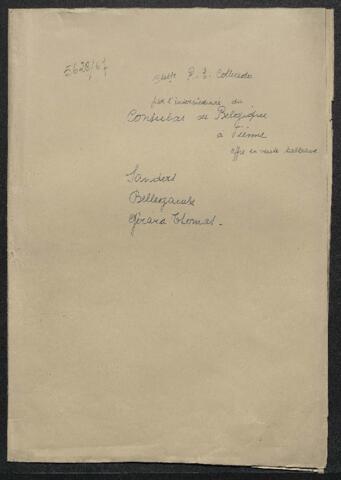 5628/67
P. E. Colloredo
par l'intermédiaire du
Consulat de Belgique
à Vienne
offre en vente tableaux
Sanders
Bellegambe
Gérard Thomas -